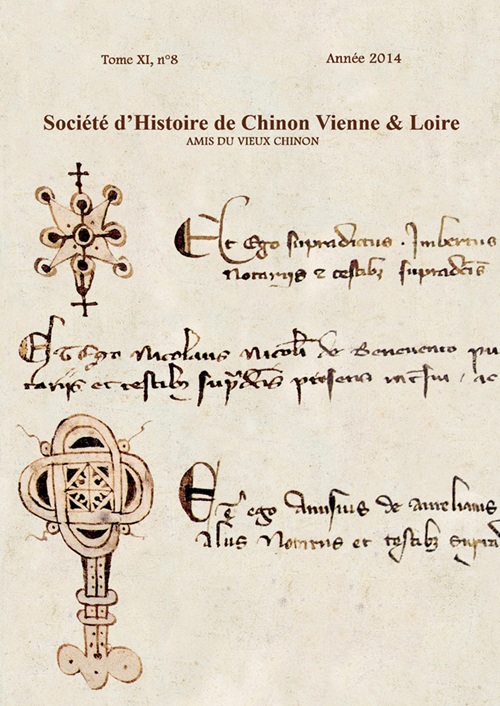 Tome XI, n°8
Année 2014
Société d'Histoire de Chinon Vienne & Loire
AMIS DU VIEUX CHINON
Et Ego supradictus . Imbertus
Notariis & testibȝ supradc̄is
Et Ego Nicolaus Nicoli de Benevento pu
tariis et testibȝ supradc̄is presens
Et ego Amisius de aurelianis
alus Notarius et testibȝ supra